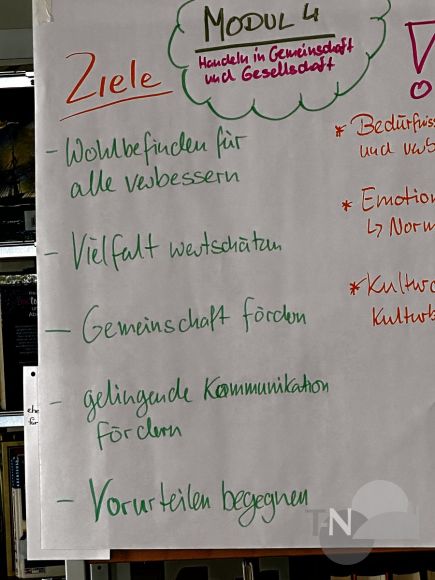 MODUL 4
Handeln in Gemeinschaft
und Gesellschaft
Ziele
- Wohlbefinden für
alle verbessern
- Vielfalt wertschätzen
- Gemeinschaft fördern
- gelingende Kommunikation
fördern
- Vorurteilen begegnen
* Bedürfnis
und verb
* Emotion
↳ Norm
* Kultur
Kulturb